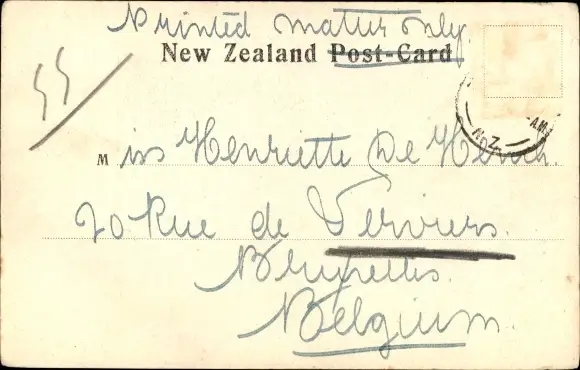 Printed matter only.
New Zealand Post-Card
55
Miss Henriette De
20 Rue de Verviers.
Bruxelles.
Belgium.
AM
N.Z.